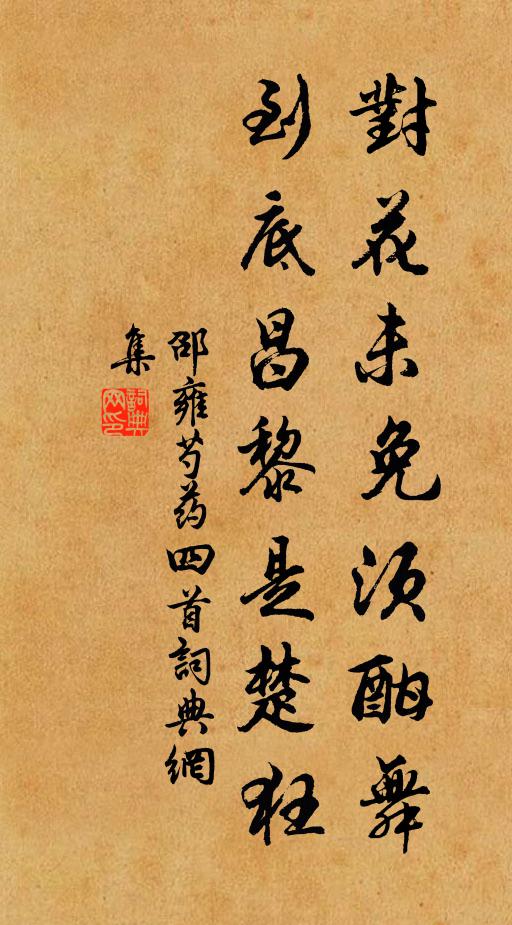 對花未免須酣舞
到底昌黎是楚狂
邵雍芍药四首詞典網
集
詞典
网印